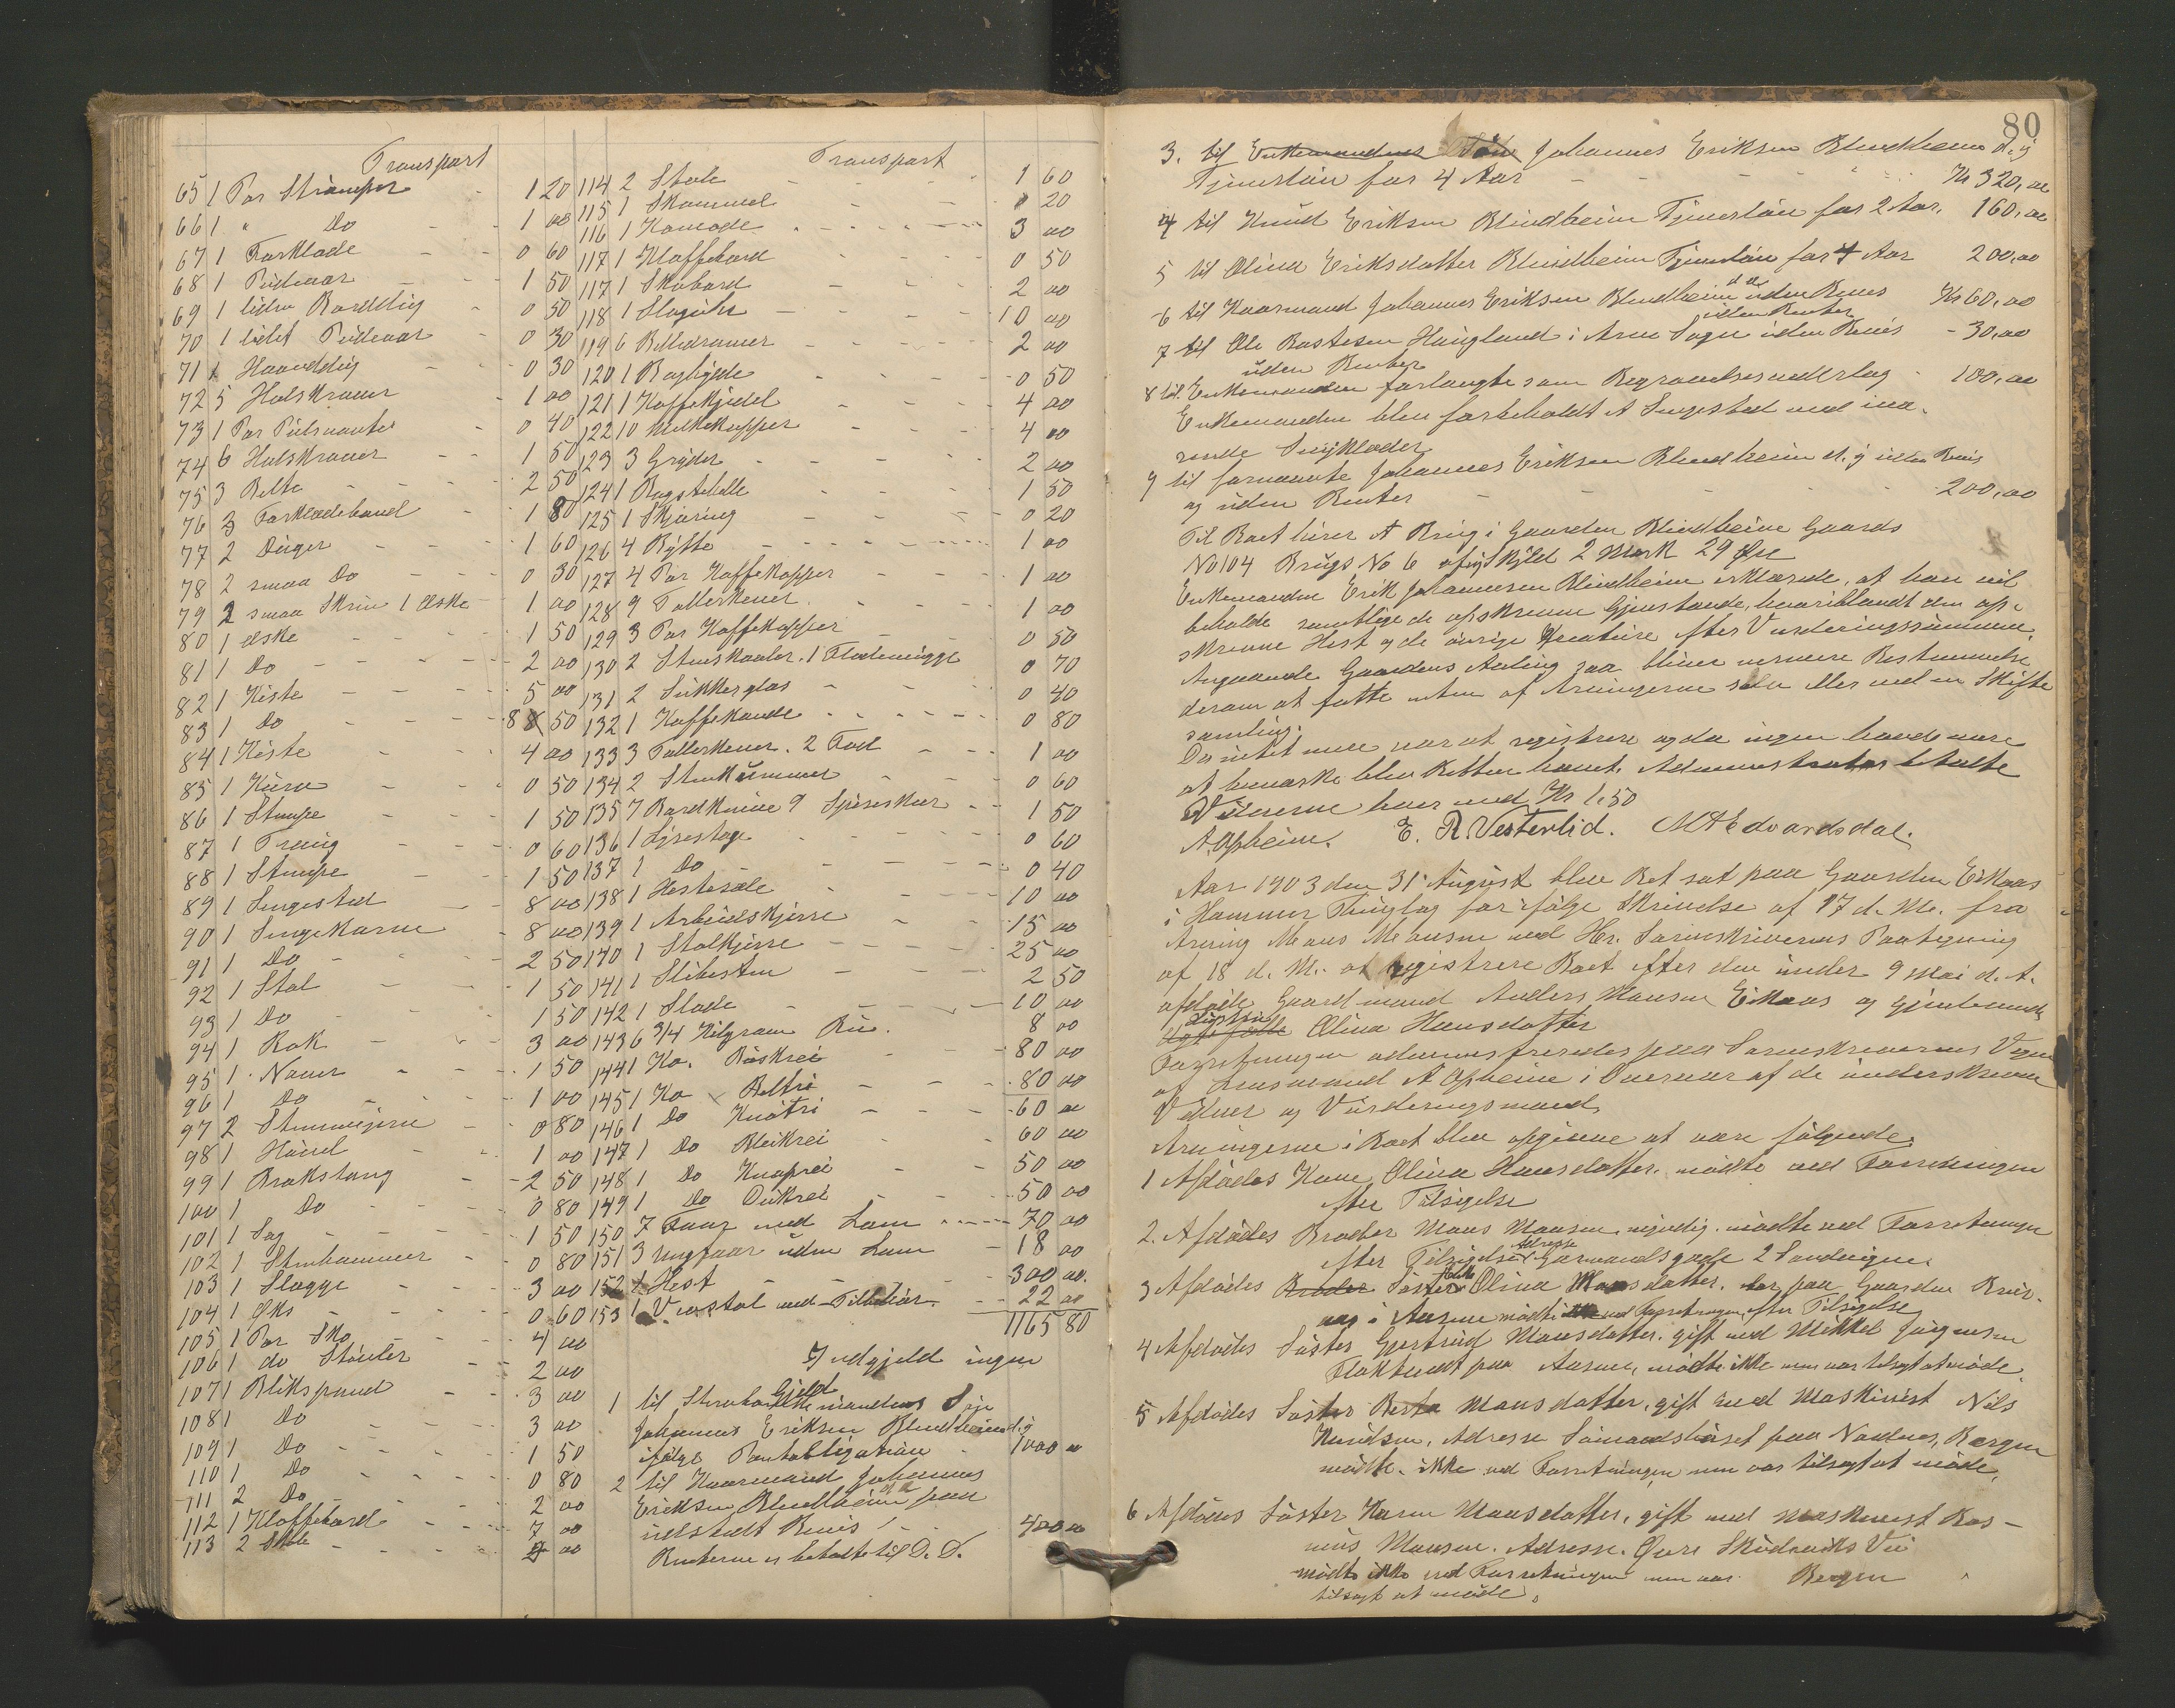 Transport
65 1 Par Strømper - 1 20
66 1 " Do - - 1 00
67 1 Forklæde - - 0 60
68 1 Pudevar - - 1 50
69 1 liden Borddug - 0 50
70 1 lidet Pudevar - 0 30
71 1 Haanddug - - 0 30
72 5 Halskraver - 1 00
73 1 Par Pulsvanter - 0 40
74 6 Halskraver - - 1 50
75 3 Belte - - - 2 50
76 3 Forklædebaand - 1 80
77 2 Duger - - - 1 60
78 2 smaa Do - - - 0 30
79 2 smaa Skrin 1 Æske - 1 00
80 1 Æske - - - 1 50
81 1 Do - - - - 2 00
82 1 Kiste - - - 5 00
83 1 Do - - - 8 50
84 1 Kiste - - 4 00
85 1 Kurv - - 0 50
86 1 Stampe - - 1 50
87 1 Traug - - 0 60
88 1 Stampe - - 1 50
89 1 Sengested - - 8 00
90 1 Sengekarm - - 8 00
91 1 Do - - - 2 50
92 1 Stol - - - 1 50
93 1 Do - - - 1 50
94 1 Rok - - - 3 00
95 1 Naver - - - 1 50
96 1 Do - - - 1 00
97 2 Stemmejern - - 0 80
98 1 Høvel - - 1 00
99 1 Brækstang - - 2 50
100 1 Do - - - 0 80
101 1 Sag - - - 1 50
102 1 Stenhammer - - 0 80
103 1 Slægge - - 3 00
104 1 Øks - - - 0 60
105 1 Par Sko - - - 4 00
106 1 do Støvler - - 2 00
107 1 Blikspand - - 3 00
108 1 Do - - - 3 00
109 1 Do - - - 1 50
110 1 Do - - - 0 80
111 2 Do - - - 2 00
112 1 Klaffebord - - - 7 00
113 2 Stole - - - 00
Transport
114 2 Stole - - - 1 60
115 1 Skammel - - 20
116 1 Komode - - - 3 00
117 1 Klaffebord - - - 0 50
117 1 Skabord - - - 2 00
118 1 Slaguhr - - - 10 00
119 6 Billedramer - - - 2 00
120 1 Boghylde - - - 0 50
121 1 Kaffekjedel - - - 4 00
122 10 Melkekopper - - - 4 00
123 3 Gryder - - - 2 00
124 1 Bagstehelle - - - 1 50
125 1 Skjæring - - - 0 20
126 4 Bøtte - - - 1 00
127 4 Par Kaffekopper - - 1 00
128 9 Tallerkener - - - 1 00
129 3 Par Kaffekopper - - 0 50
130 2 Stenskaaler. 1 Flødemugge 0 70
131 2 Sukkerglas - - - 0 40
132 1 Kaffekande - - - 0 80
133 3 Tallerkener. 2 Fad - - 1 00
134 2 Stenkummer - - 0 60
135 7 Bordknive 9 Spiseskeer - - 1 50
136 1 Lysestage - - - 0 60
137 1 Do - - - 0 40
138 1 Hestesæle - - - 10 00
139 1 Arbeidskjerre - - 15 00
140 1 Stolkjerre - - - 25 00
141 1 Slibesten - - - 2 50
142 1 Slæde - - - 10 00
143 6 3/4 Kilgram - 8 00
144 1 Ko. Raskrei - - 80 00
145 1 Ko - - - 80 00
146 1 Do - - - 60 00
147 1 Do Bleikrei - - 60 00
148 1 Do Knaprei - - 50 00
149 1 Do - - 50 00
150 7 Faar med Lam - - - 70 00
151 3 ungfaar uden Lam - 18 00
152 1 Hest - - - 300 00
153 1 Vevstol med Tilbehør. - - 22 00
1165 80
Indgjeld ingen
Gjeld
1 til Enkemandens Søn
Johannes Eriksen Blindheim d.y
ifølge Pantobligation - 1000 00
2 til Kaarmand Johannes
Eriksen Blindheim d.æ paa
udstedt Bevis - 400 00
Renterne er betalte til D. D.
80
3. til Enkemandens Søn Johannes Eriksen Blindheim d.y
Tjenerløn for 4 Aar - - - Kr 320,00
4 til Knud Eriksen Blindheim Tjenerløn for 2 Aar. 160,00
5 til Olina Eriksdatter Blindheim Tjenerløn for 4 Aar 200,00
6 til Kaarmand Johannes Eriksen Blindheim d æ uden Bevis Kr 60,00
uden Renter
7 til Ole Bastesen Haugland i Arne Sogn uden Bevis - 30,00
uden Renter
8 til Enkemanden forlangte som Begravelsesudlæg - 100,00
Enkemanden blev forbeholdt et Sengested med iva-
rende Sengklæder
9 til fornævnte Johannes Eriksen Blindheim d.y uden Bevis
og uden Renter - - - 200,00
Til Boet hører et Brug i Gaarden Blindheim Gaards
No 104 Brugs No 6 af Skyld 2 Mark 29 Øre
Enkemanden Erik Johannesen Blindheim erklærede, at han vil
beholde samtlige de opskrevne Gjenstande, hvoriblandt den op-
skrevne Hest og de øvrige Kreature efter Vurderingssummen.
Angaaende Gaardens Avling saa bliver nærmere Bestemmelse
derom at fatte enten af Arvingerne selv eller ved en Skifte
samling.
Da intet mere var at registrere og da ingen havde mere
at bemærke blev Retten hævet. Administrator betalte
Vidnerne hver med Kr 1.50
A. Opheim. E. R. Vesterlid. M A Edvardsdal.
Aar 1903 den 31 August blev Ret sat paa Gaarden Eikaas
i Hammer Thinglag for ifølge Skrivelse af 17 d. M. fra
Arving Mons Monsen med Hr. Sorenskriverens Paategning
af 18 d. M. at registrere Boet efter den under 9 Mai d. A.
afdøde Gaardmand Anders Monsen Eikaas og gjenlevende
Olina Hansdatter
Forretningen administreredes paa Sorenskriverens Vegne
af Lensmand A Opheim i Overvær af de underskrevne
Vidner og Vurderingsmænd
Arvingerne i Boet blev opgivne at være følgende.
1 Afdødes Kone Olina Hansdatter. mødte ved Forretningen
efter Tilsigelse
2. Afdødes Broder Mons Monsen myndig. mødte ved Forretningen
efter Tilsigelse Adresse Garmandsgade 2 Sandvigen
3 Afdødes Broder Søster Olina Monsdatter. bor paa Gaarden
i Aasene mødte ved Forretningen efter Tilsigelse
4 Afdødes Søster Gjertrud Monsdatter. gift med Mikkel Jørgensen
paa Aasene, mødte ikke men var tilsagt at møde.
5 Afdødes Søster Berta Monsdatter, gift med Maskinist Nils
Knudsen. Adresse Sømandshuset paa Nordnes, Bergen
mødte. ikke ved Forretningen men var tilsagt at møde.
6 Afdødes Søster Karen Monsdatter, gift med Maskinist Ras-
mus Monsen. Adresse. Øvre Skudeviks Vei
mødte ikke ved Forretningen men var Bergen
tilsagt at møde.